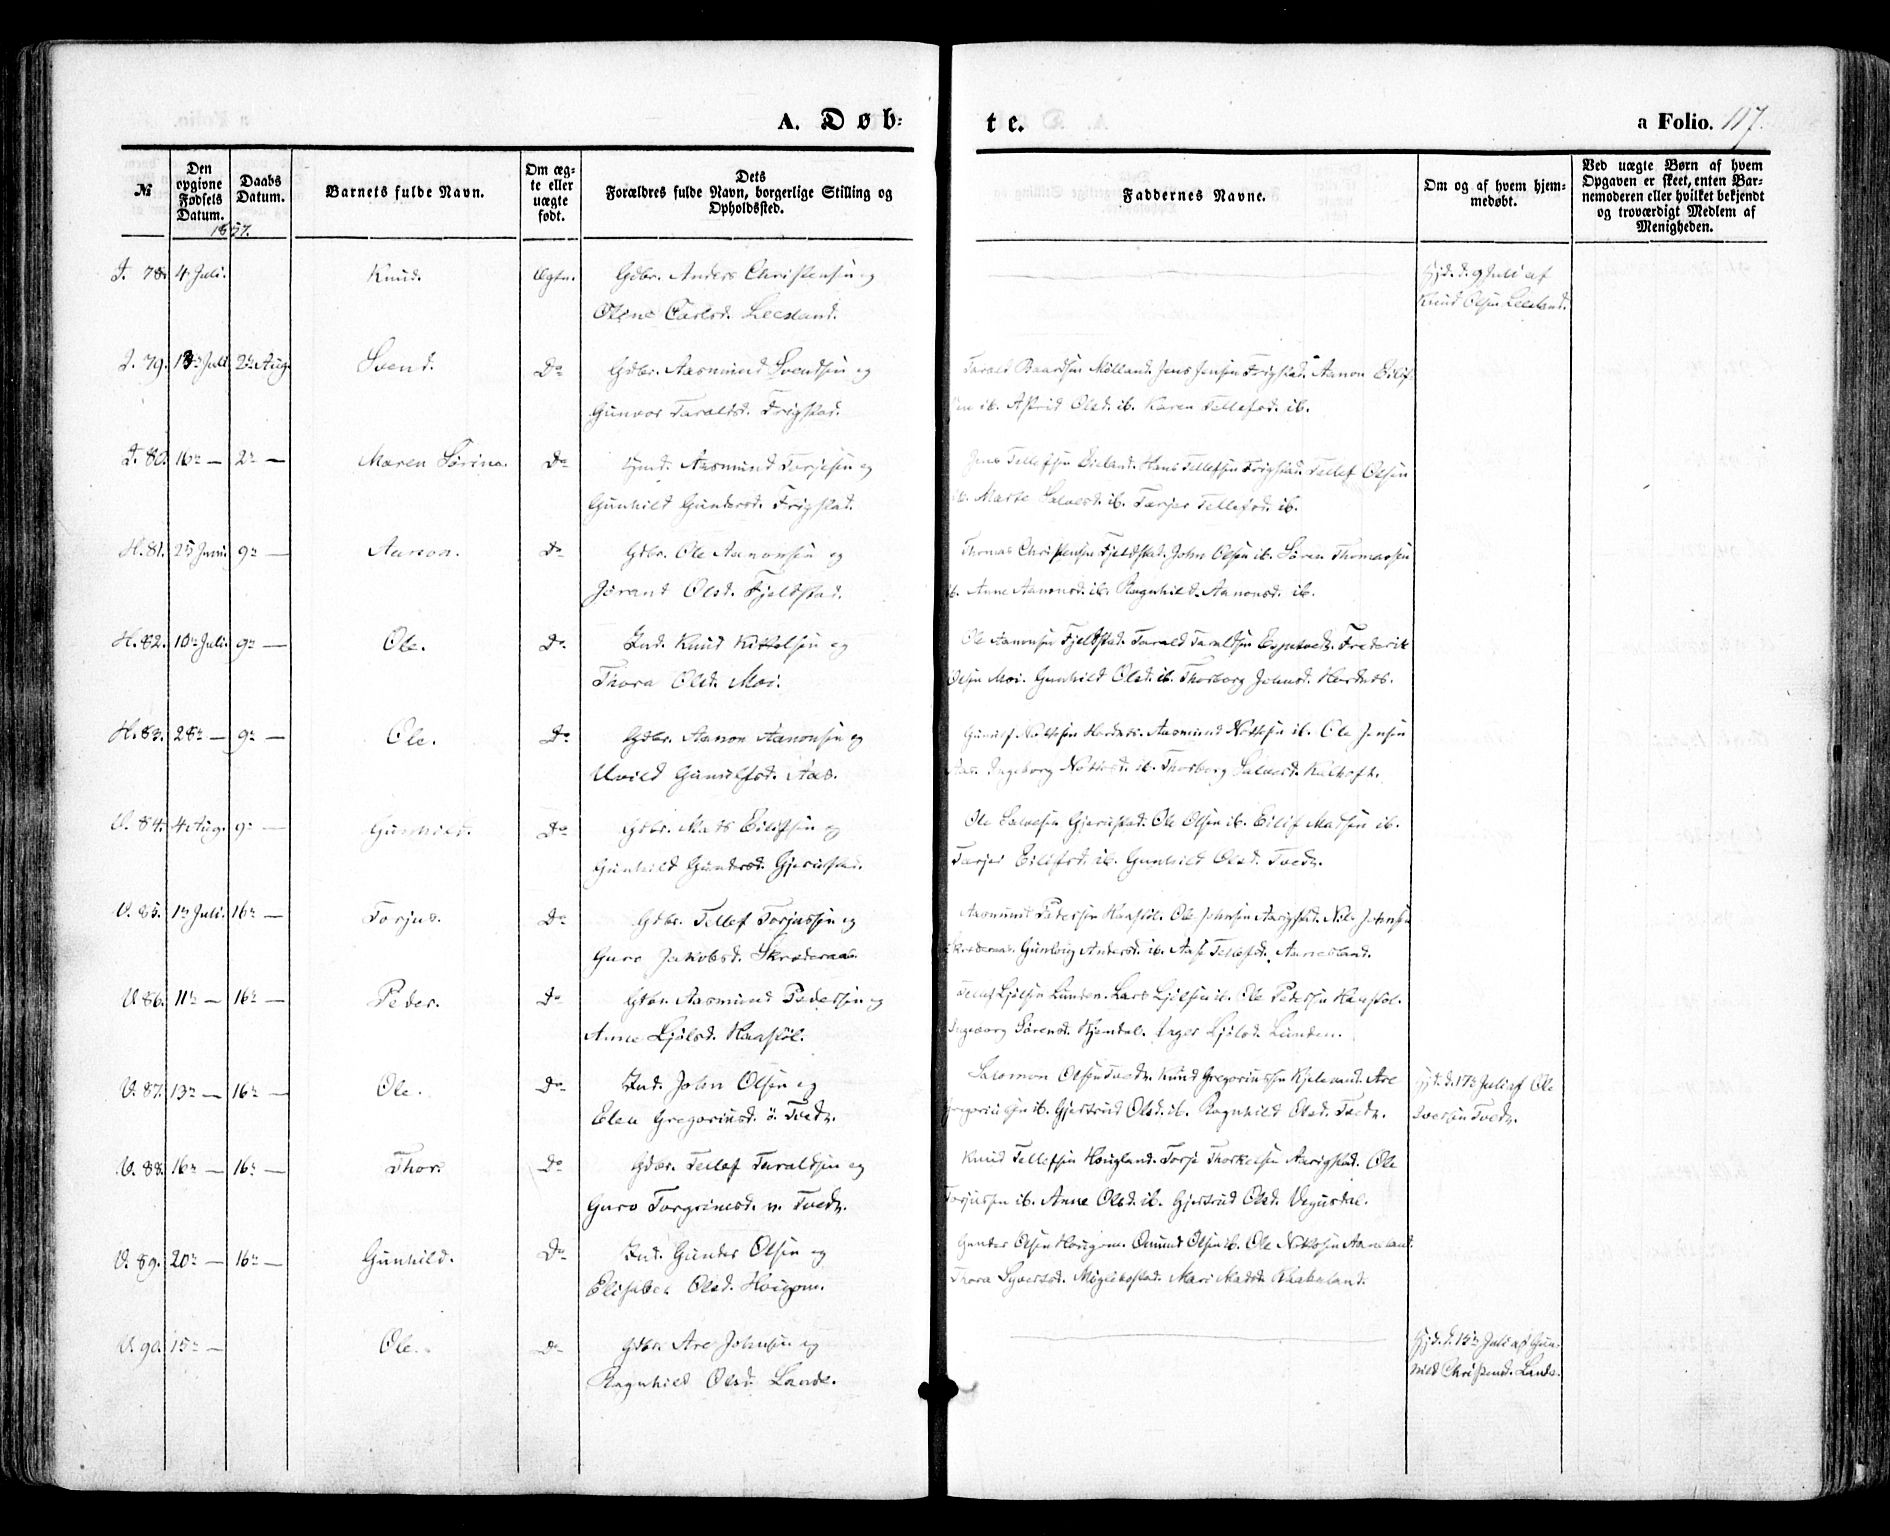 A. Døb-
te.
a Folio. 117.
№
Den opgivne Fødsels Datum.
Daabs Datum.
Barnets fulde Navn.
Om æg-
te eller uægte født.
Dets
Forældres fulde Navn, borgerlige Stilling og
Opholdssted.
Faddernes Navne.
Om og af hvem hjem-
medøbt.
Ved uægte Børn af hvem
Opgaven er skeet, enten Bar-
nemoderen eller hvilket bekjendt
og troværdigt Medlem af
Menigheden.
1857.
78. 4 Juli. Knud. Ægte. Gdbr. Anders Christensen og
Olene Carlsd. Leesland.
Hjd. d. 9 Juli af
Knud Olsen Leesland.
79. 13 Juli 2 Aug. Svend. Do Gdbr. Aasmund Svendsen og
Gunvor Taraldsd. Frigstad.
Tarald Baardsen Mølland. Jens Jensen Frigstad. Aanon Eilif-
sen ib. Astrid Olsd. ib. Karen Tellefsd. ib.
80. 16 — 2 — Maren Sørine. Do Aasmund Torjesen og
Gunhild Gundersd. Frigstad.
Jens Tellefsen Eieland. Hans Tellefsen Frigstad. Tellef Olsen
ib. Marte Salvesd. ib. Tarjer Tellefsd. ib.
H. 81. 25 Juni. 9 — Aanon. Do Gdbr. Ole Aanonsen og
Jorand Olsd. Fjeldstad.
Thomas Christensen Fjeldstad. John Olsen ib. Søren Thomassen
ib. Anne Aanonsd. ib. Ragnhild Aanonsd. ib.
H. 82. 10 Juli. 9 — Ole. Do Ind. Knud Kittelsen og
Thora Olsd. Moi.
Ole Aanonsen Fjeldstad. Tarald Taraldsen Frederik
Olsen Moi. Gunhild Olsd. ib. Thorborg Johnsd. Hordnes.
H. 83. 28 — 9 — Ole. Do Gdbr. Aanon Aanonsen og
Uvild Gunulfsd. Aas.
Gunulf Nottesen Hordnes. Aasmund Nottesen ib. Ole Jensen
Aas. Ingeborg ib. Thorborg Salvesd.
V. 84. 4 Aug. 9 — Gunhild. Do Gdbr. Mads Eilifsen og
Gunhild Gundersd. Gjerustad.
Ole Salvesen Gjerustad. Ole Olsen ib. Eilif Madsen ib.
Tarjer Eilifsd. ib. Gunhild Olsd. Tvedt.
V. 85. 13 Juli. 16 — Torjus. Do Gdbr. Tellef Torjussen og
Guro Jakobsd. Skroderaas.
Aasmund Pedersen Haastøl. Ole Johnsen Aarigstad. Nils Jakobsen
Skroderaas. Gunborg Andersd. ib. Aase Tellefsd. Aanesland.
V. 86. 11 — 16 — Peder. Do Gdbr. Aasmund Pedersen og
Anne Ljølsd. Haastøl.
Tellef Ljølsen Lunden. Lars Ljølsen ib. Ole Pedersen Haastøl.
Ingeborg Sørensd. Hjendal. Inger Ljølsd. Lunden.
V. 87. 13 — 16 — Ole. Do Ind. John Olsen og
Elen Gregoriusd. ö. Tvedt.
Salomon Olsen Tvedt. Knud Gregoriussen Kjelevand. Are
Gregoriussen ib. Gjertrud Olsd. ib. Ragnhild Olsd. Tvedt.
Hjd. d. 17 Juli af Ole
Iversen Tvedt.
V. 88. 16 — 16 — Thor. Do Gdbr. Tellef Taraldsen og
Guro Torgrimsd. n. Tvedt.
Knud Tellefsen Hougland. Torje Thorkelsen Aarigstad. Ole
Torjussen ib. Anne Olsd. ib. Gjertrud Olsd. Vegusdal.
V. 89. 20 — 16 — Gunhild. Do Ind. Gunder Olsen og
Elisabet Olsd. Hougom.
Gunder Olsen Hougom. Omund Olsen ib. Ole Nottesen Aanesland.
Thora Syversd. Møglebostad. Mari Madsd. Kaabuland.
V. 90. 15 — Ole. Do Gdbr. Are Johnsen og
Ragnhild Olsd. Lande.
Hjd. d. 15 Juli af Gun-
hild Christensd. Lande.